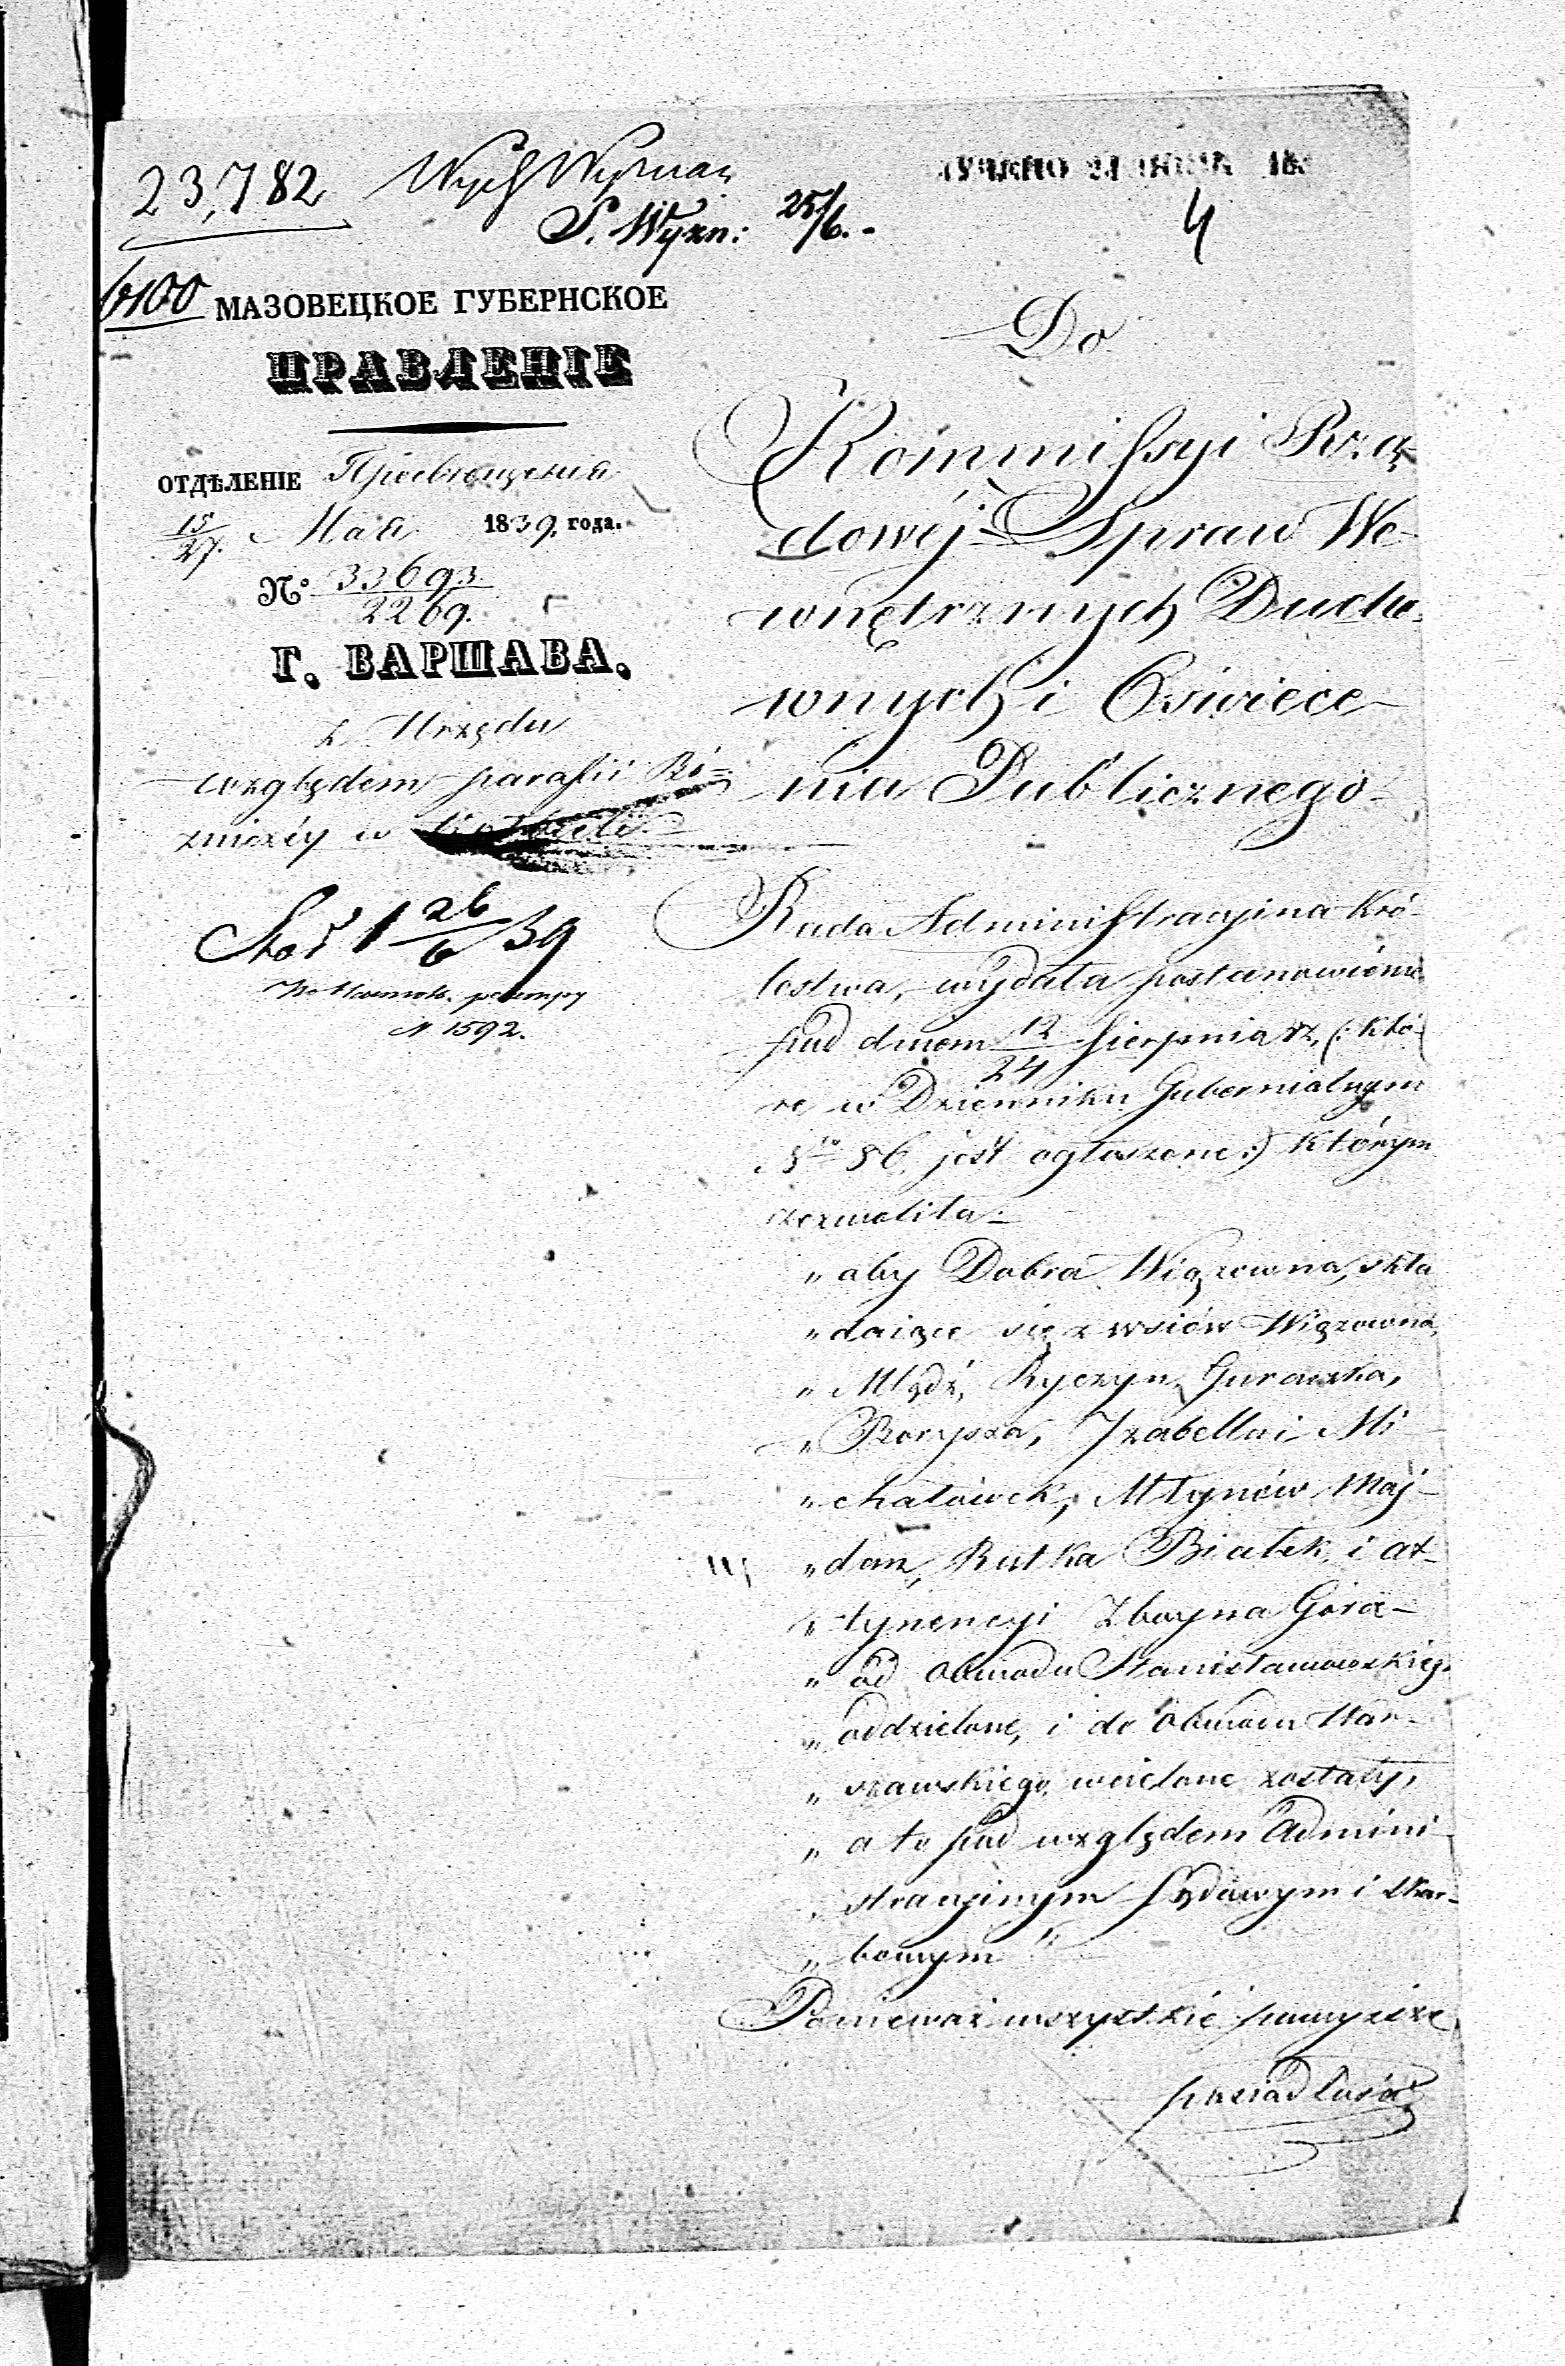 23,782 Wydz Wyznań
S. Wyzn: 25/6.-
4
6100
МАЗОВЕЦКОЕ ГУБЕРНСКОЕ
ПРАВЛЕНІЕ
ОТДѢЛЕНІЕ Просвѣщенія
15/27. Мая 1839. года.
№ 33693./2269.
Г. ВАРШАВА.
z Urzędu
względem parafii Bó-
zniczéy w
26/6 39
N 1592.
Do
Kommissyi Rzą-
dowéj Spraw We-
wnętrznych Ducho-
wnych i Oświece-
nia Publicznego
Rada Administracyina Kró-
lestwa, wydała postanowienie
pod dniem 12/24 Sierpnia rz, (: któ-
re w Dzienniku Gubernialnym
86 jest ogłoszone:) którym
zezwoliła:
„ aby Dobra Wiązowna, skła
„ daiące się z wsiów Wiązowna,
„ Mlądź, Ryczyn, Guraszka,
„ Boryszа, Izabella i Mi-
„ chałówek, Młynów Maj-
„ dan, Rutka Białek, i at-
„ tynencyi Zboyna Góra-
„ od obwodu Stanisławowskieg.
„ oddzielone, i do obwodu War-
„ szawskiego wcielone zostały,
„ a to pod względem admini-
„ stracyinym Sądowym i skar-
„ bowym "
Ponieważ wszystkie powyższe
posiadłości